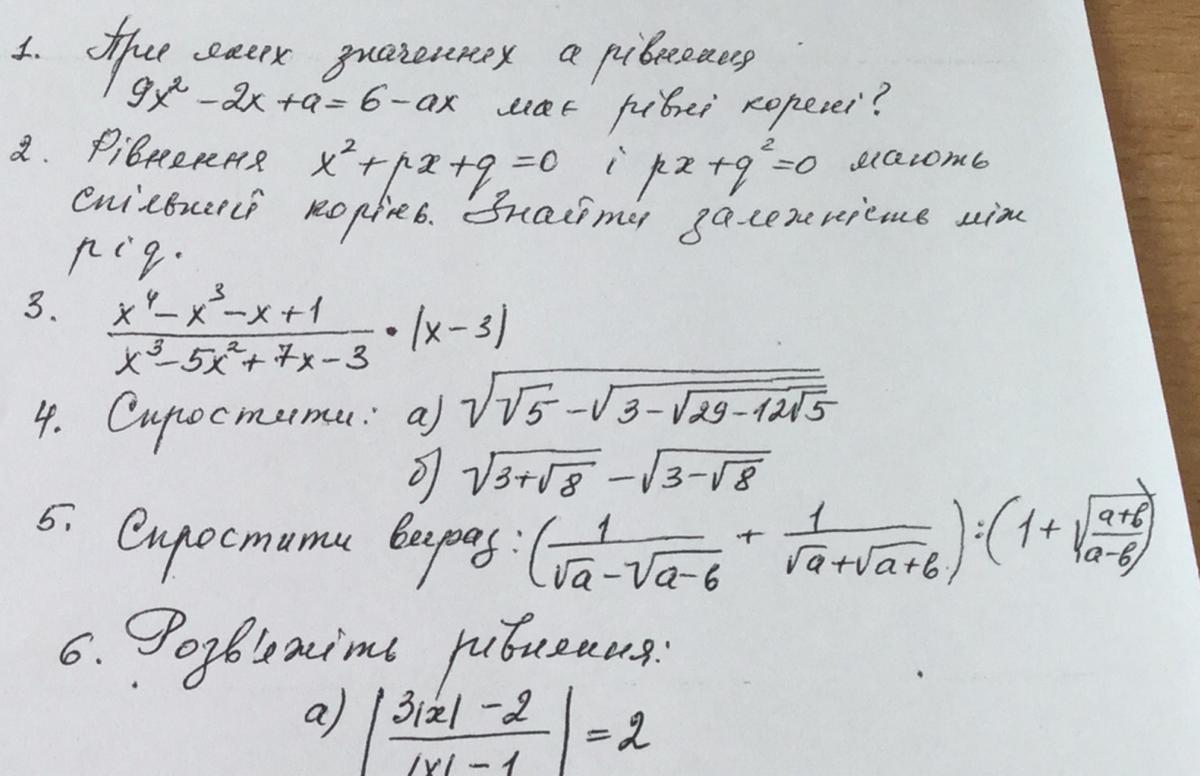 1. При яких значеннях а рівняння
9x² - 2x + a = 6 - ax має рівні корені?
2. Рівняння x² + px + q = 0 і px + q² = 0 мають
спільний корінь. Знайти залежність між
p і q.
3. (x⁴ - x³ - x + 1)/(x³ - 5x² + 7x - 3) · |x - 3|
4. Спростити: а) √(√5 - √(3 - √(29 - 12√5)))
б) √(3 + √8) - √(3 - √8)
5. Спростити вираз: (1/(√a - √(a - b)) + 1/(√a + √(a + b))) : (1 + √((a + b)/(a - b)))
6. Розв'яжіть рівняння:
а) |(3|x| - 2)/(|x| - 1)| = 2